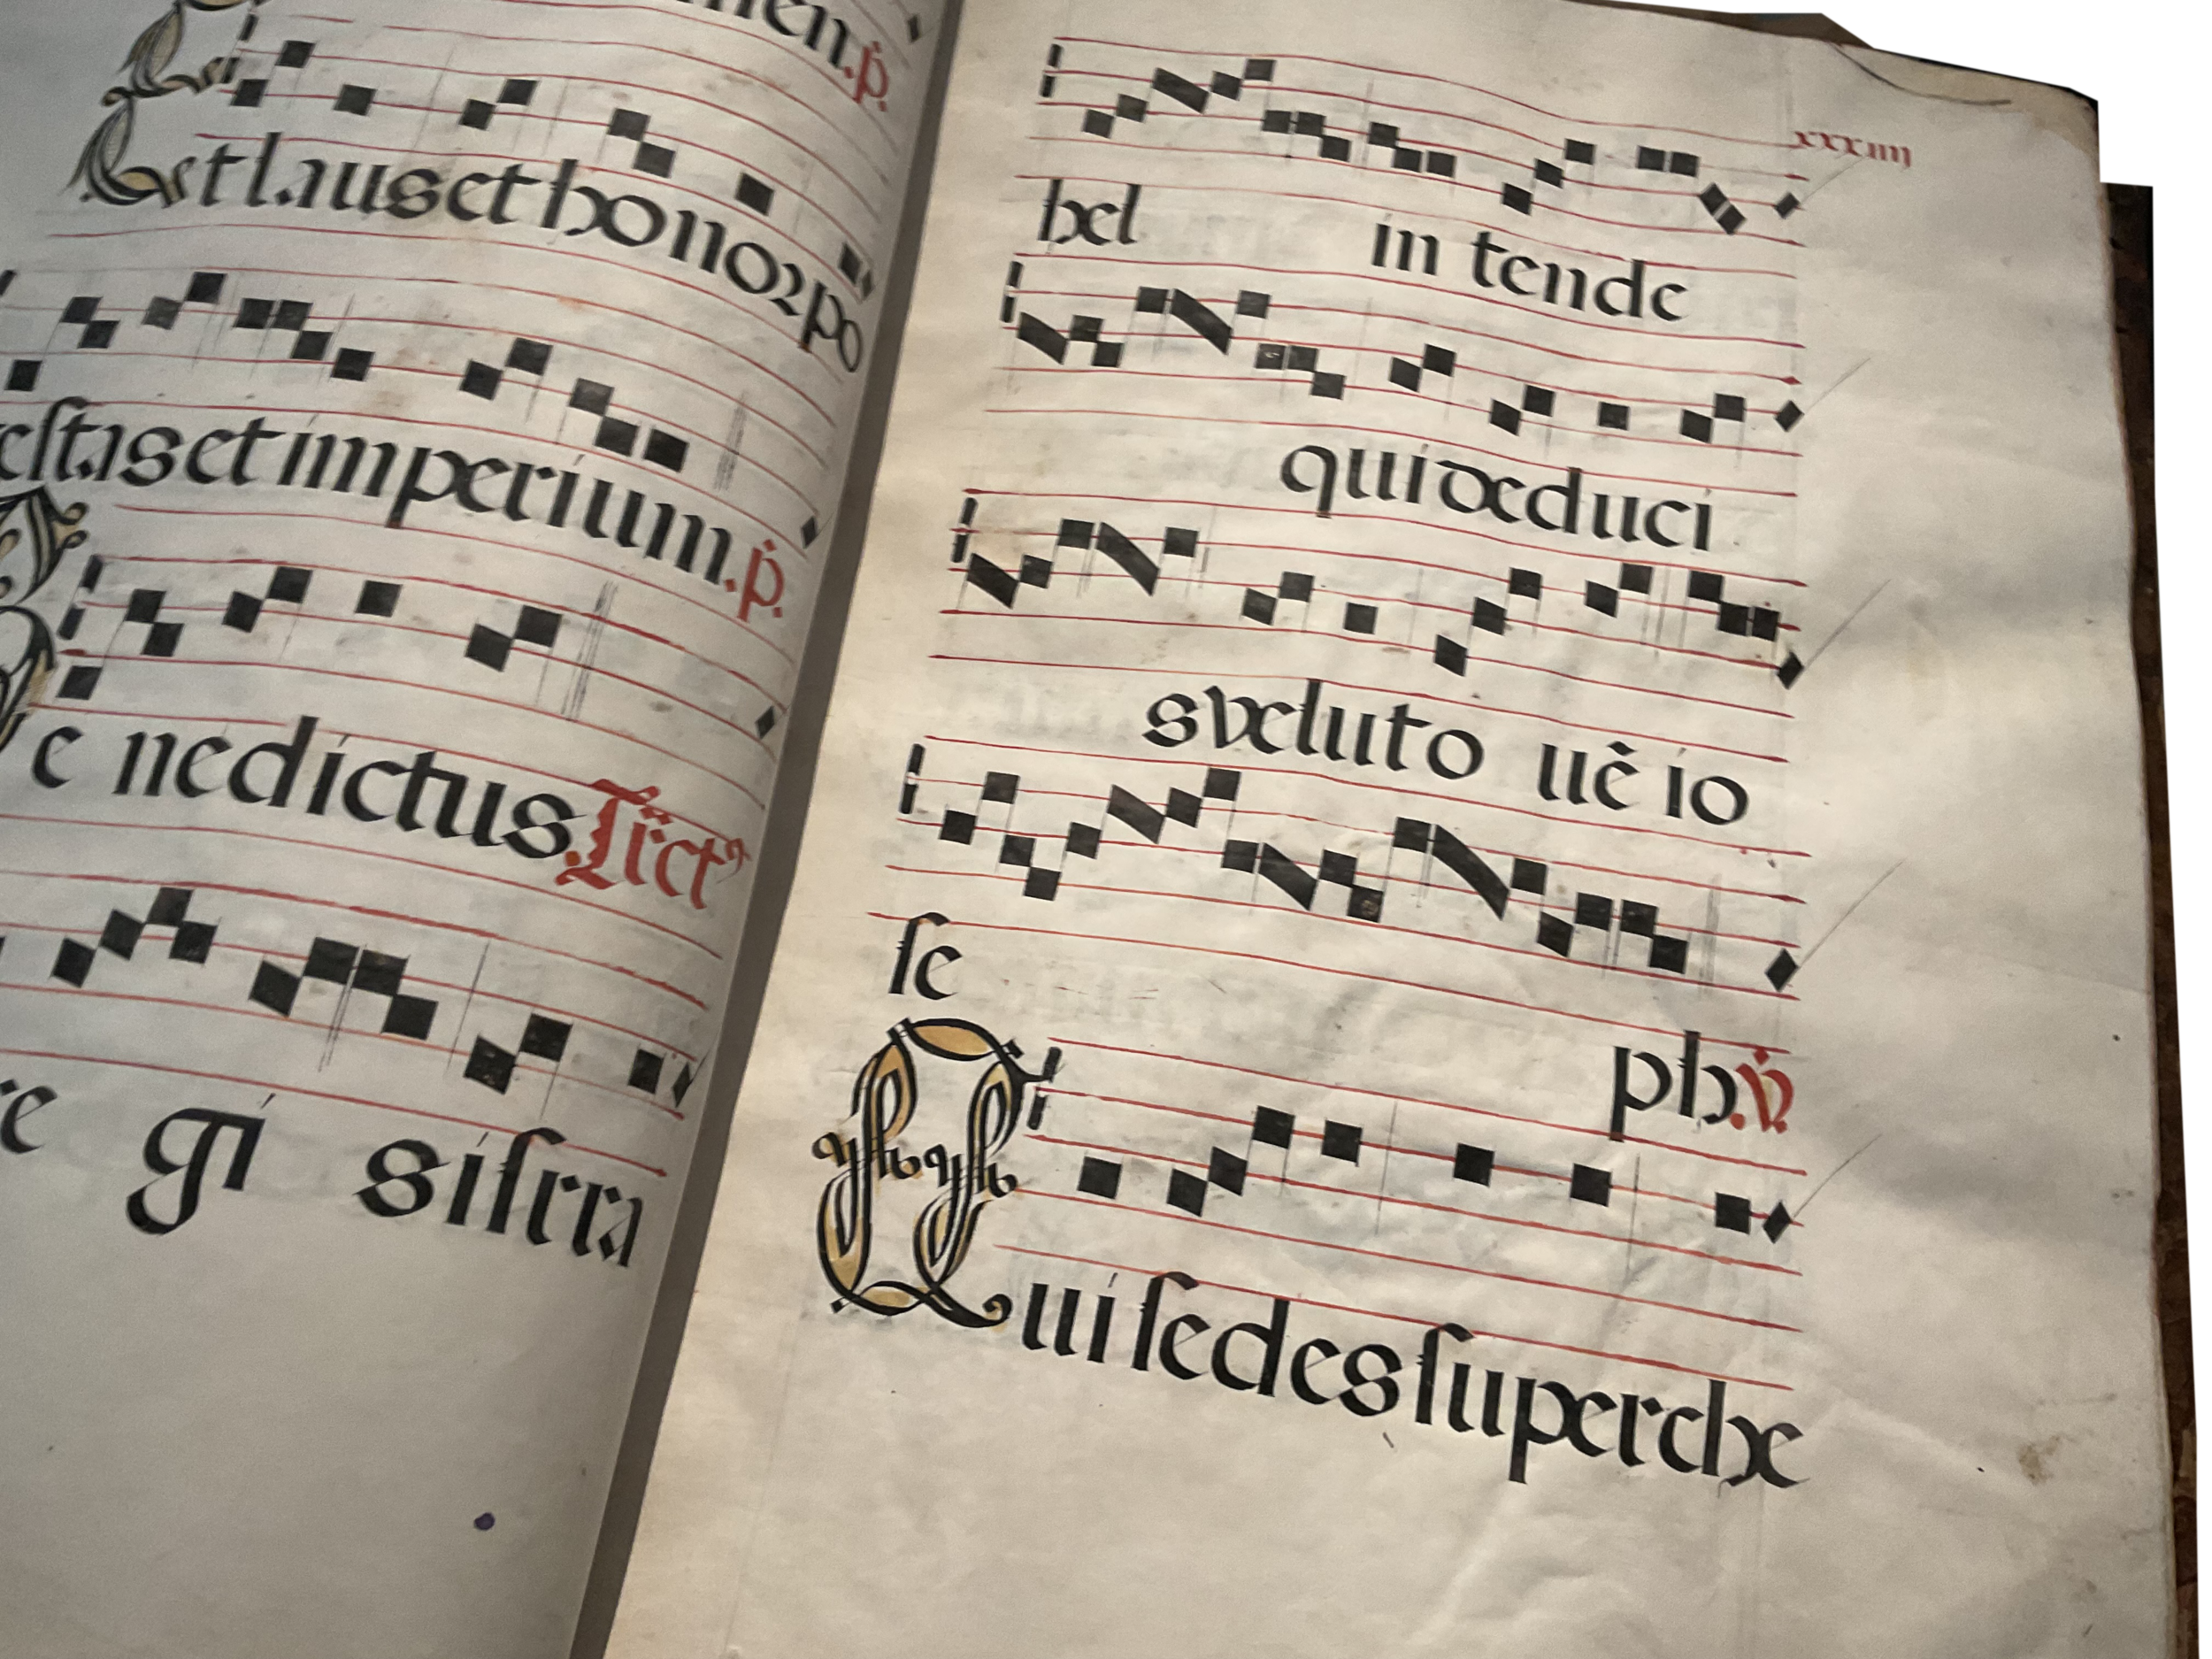 men.ṗ.
Et laus et honor po
estas et imperium.ṗ.
Be nedictus
re gi sisrra
xxxiiij
hel in tende
qui deduci
s velut o uẽ io
se
ph.v̇.
Qui sedes super che